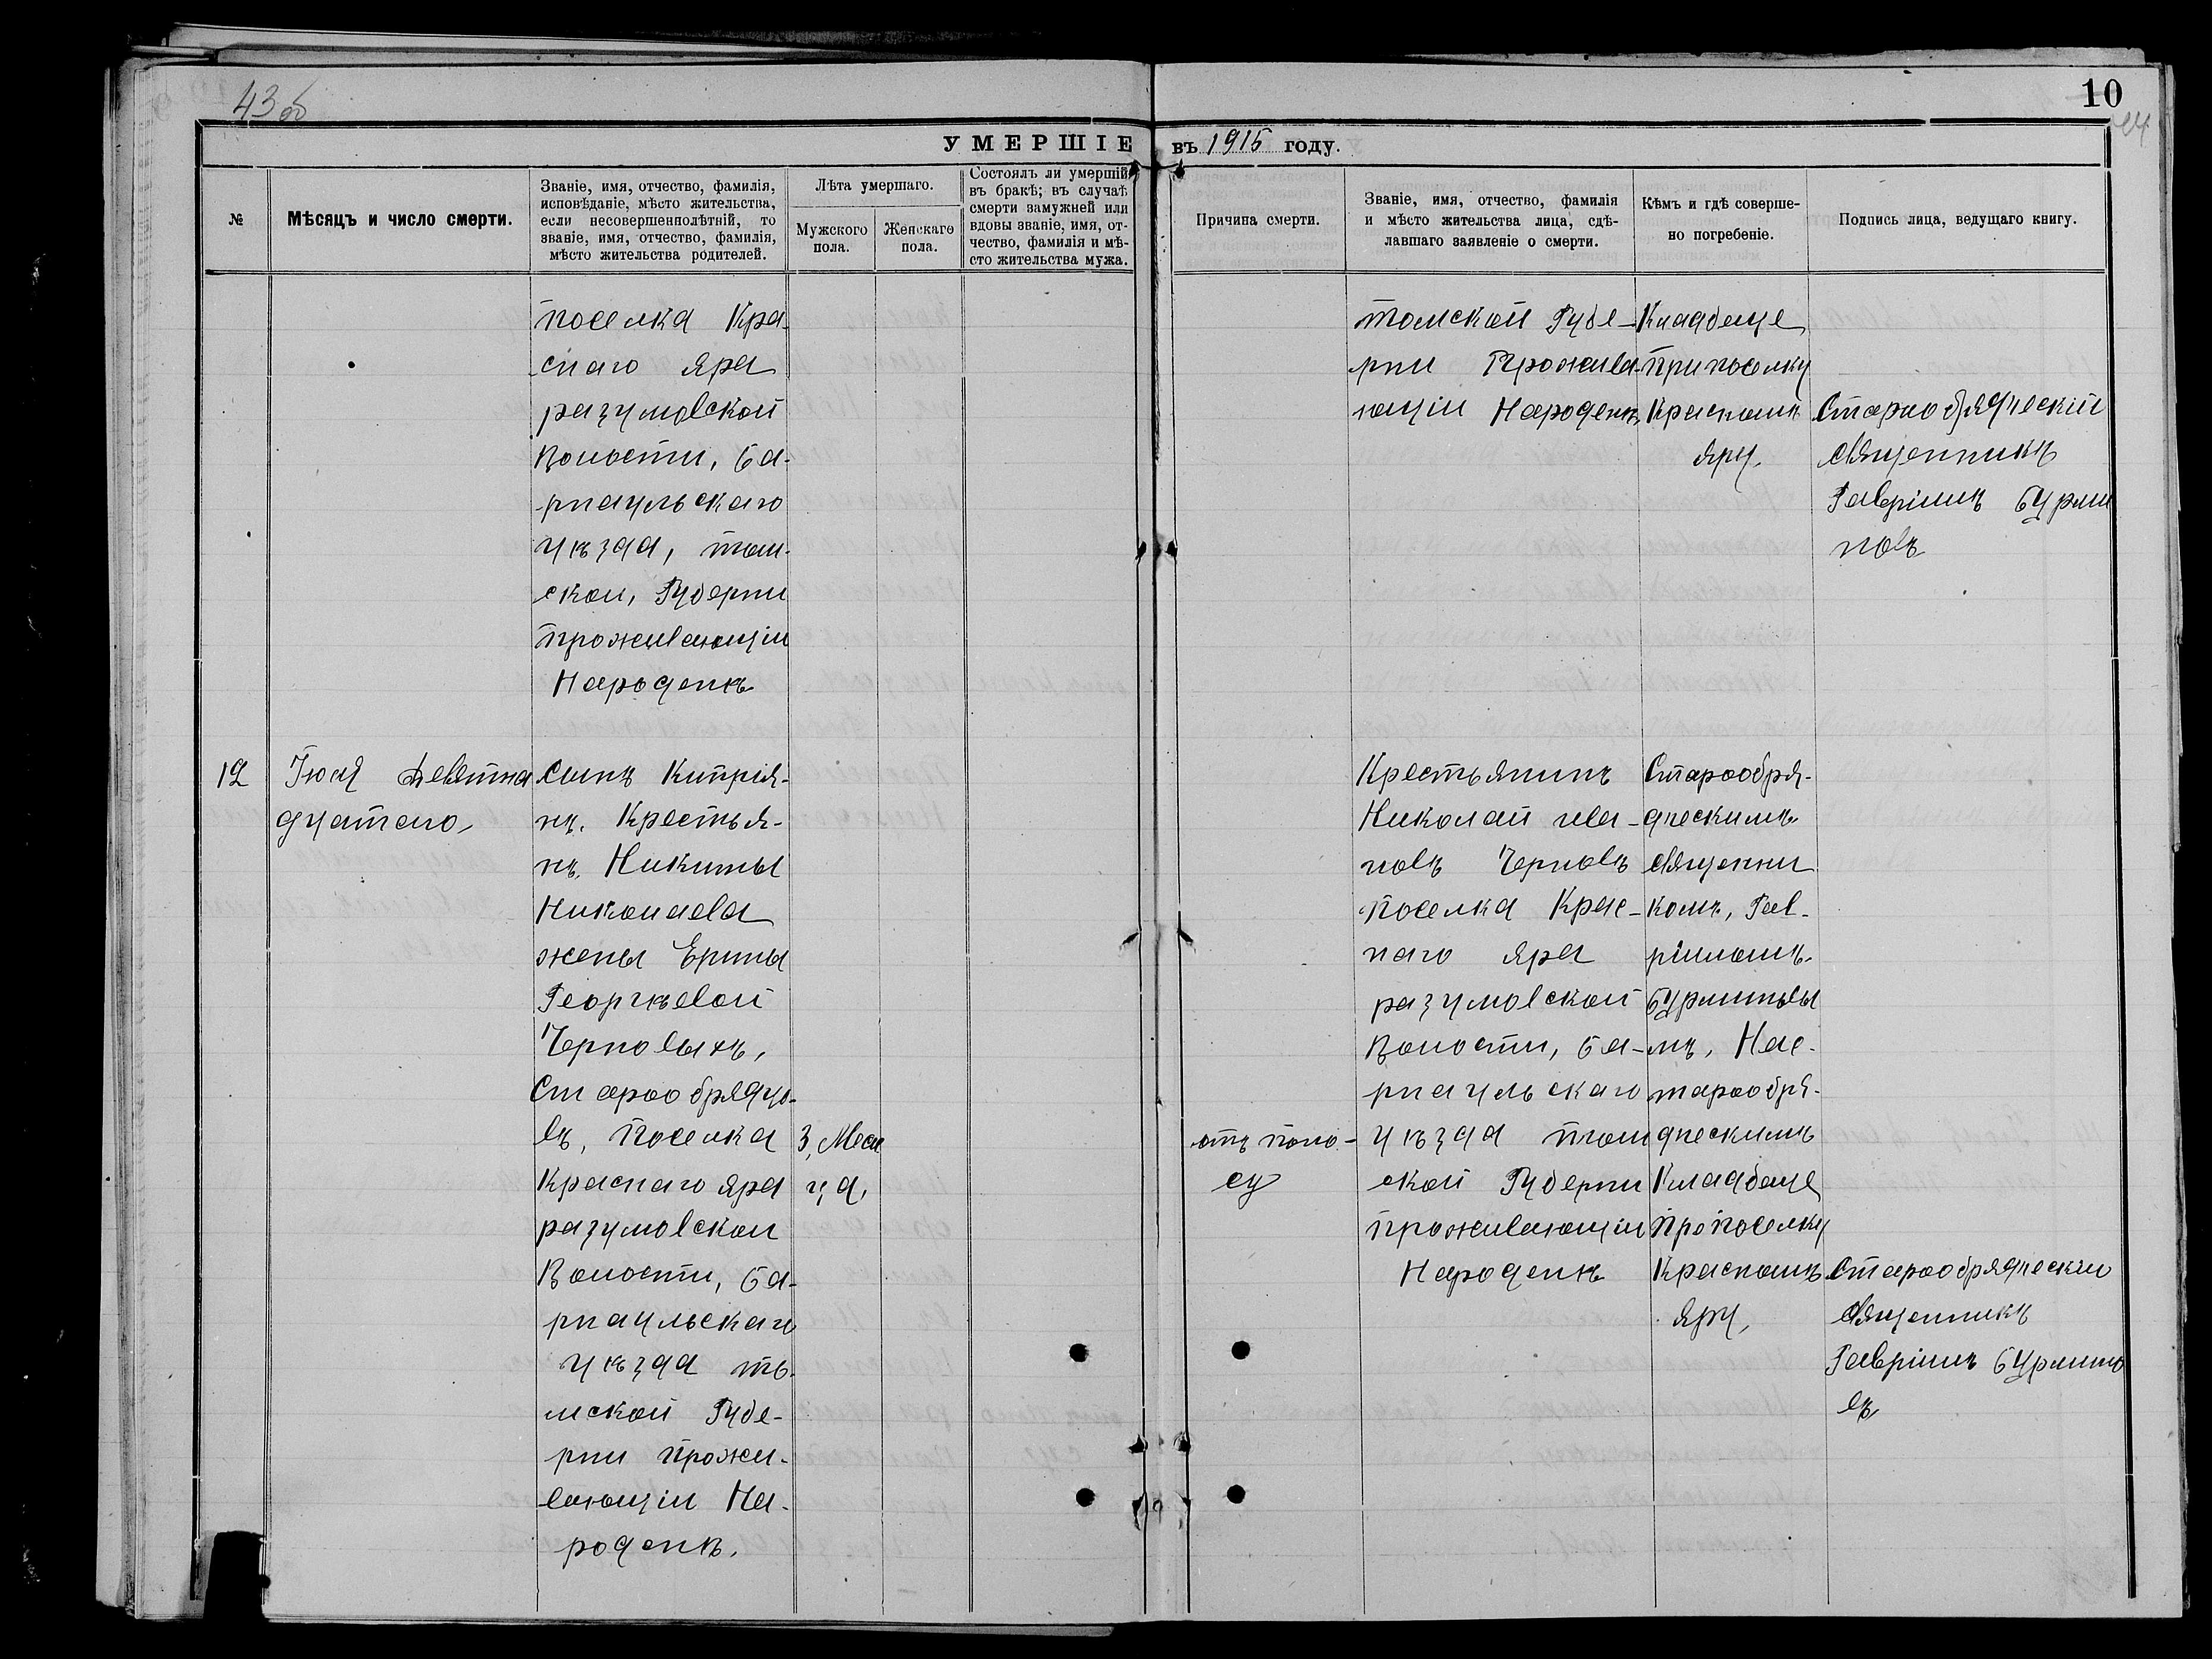 43 об
10
44
УМЕРШІЕ въ 1915 году.
№
Мѣсяцъ и число смерти.
Званіе, имя, отчество, фамилія,
исповѣданіе, мѣсто жительства,
если несовершеннолѣтній, то
званіе, имя, отчество, фамилія,
мѣсто жительства родителей.
Лѣта умершаго.
Мужского
пола.
Женскаго
пола.
Состоялъ ли умершій
въ бракѣ; въ случаѣ
смерти замужней или
вдовы званіе, имя, от-
чество, фамилія и мѣ-
сто жительства мужа.
Причина смерти.
Званіе, имя, отчество, фамилія
и мѣсто жительства лица, сдѣ-
лавшаго заявленіе о смерти.
Кѣмъ и гдѣ соверше-
но погребеніе.
Подпись лица, ведущаго книгу.
поселка Кра-
снаго яра
разумовской
Волости, Ба-
рнаульскаго
уѣзда, том-
скои, Губерни
проживающіи
Народенъ
томской Губе-
рни Прожива-
ющіи Народенъ,
Кладбеще
При поселку
Красномъ
яру,
Старообрядческіи
священникъ
Гавріилъ Бурми
новъ
12
Іюля Девятна
дцатаго,
Сынъ Кипрія-
нъ. Крестья-
нъ. Никиты
Николаева
жены Ерины
Георгѣевой
Черновыхъ,
Старообрядцо-
въ, Поселка
Краснаго яра
разумовскои
Волости, Ба-
рнаульскаго
уѣзда то-
мской Губе-
рни прожи-
вающіи На-
роденъ.
3, Меся
ца,
отъ поно-
су
Крестьянинъ
Николай ива-
новъ Черновъ
Поселка Крас-
наго яра
разумовской
Волости, Ба-
рнаульскаго
уѣзда том
ской Губерни
проживающіи
Народенъ
Старообря-
дческимъ
священни
комъ, Гав-
ріиломъ
Бурминовы
мъ, Нас-
тарообря-
дческимъ
Кладбеще
Про поселку
Красномъ
яру,
Старообрядческіи
священникъ
Гавріилъ Бурмино
въ